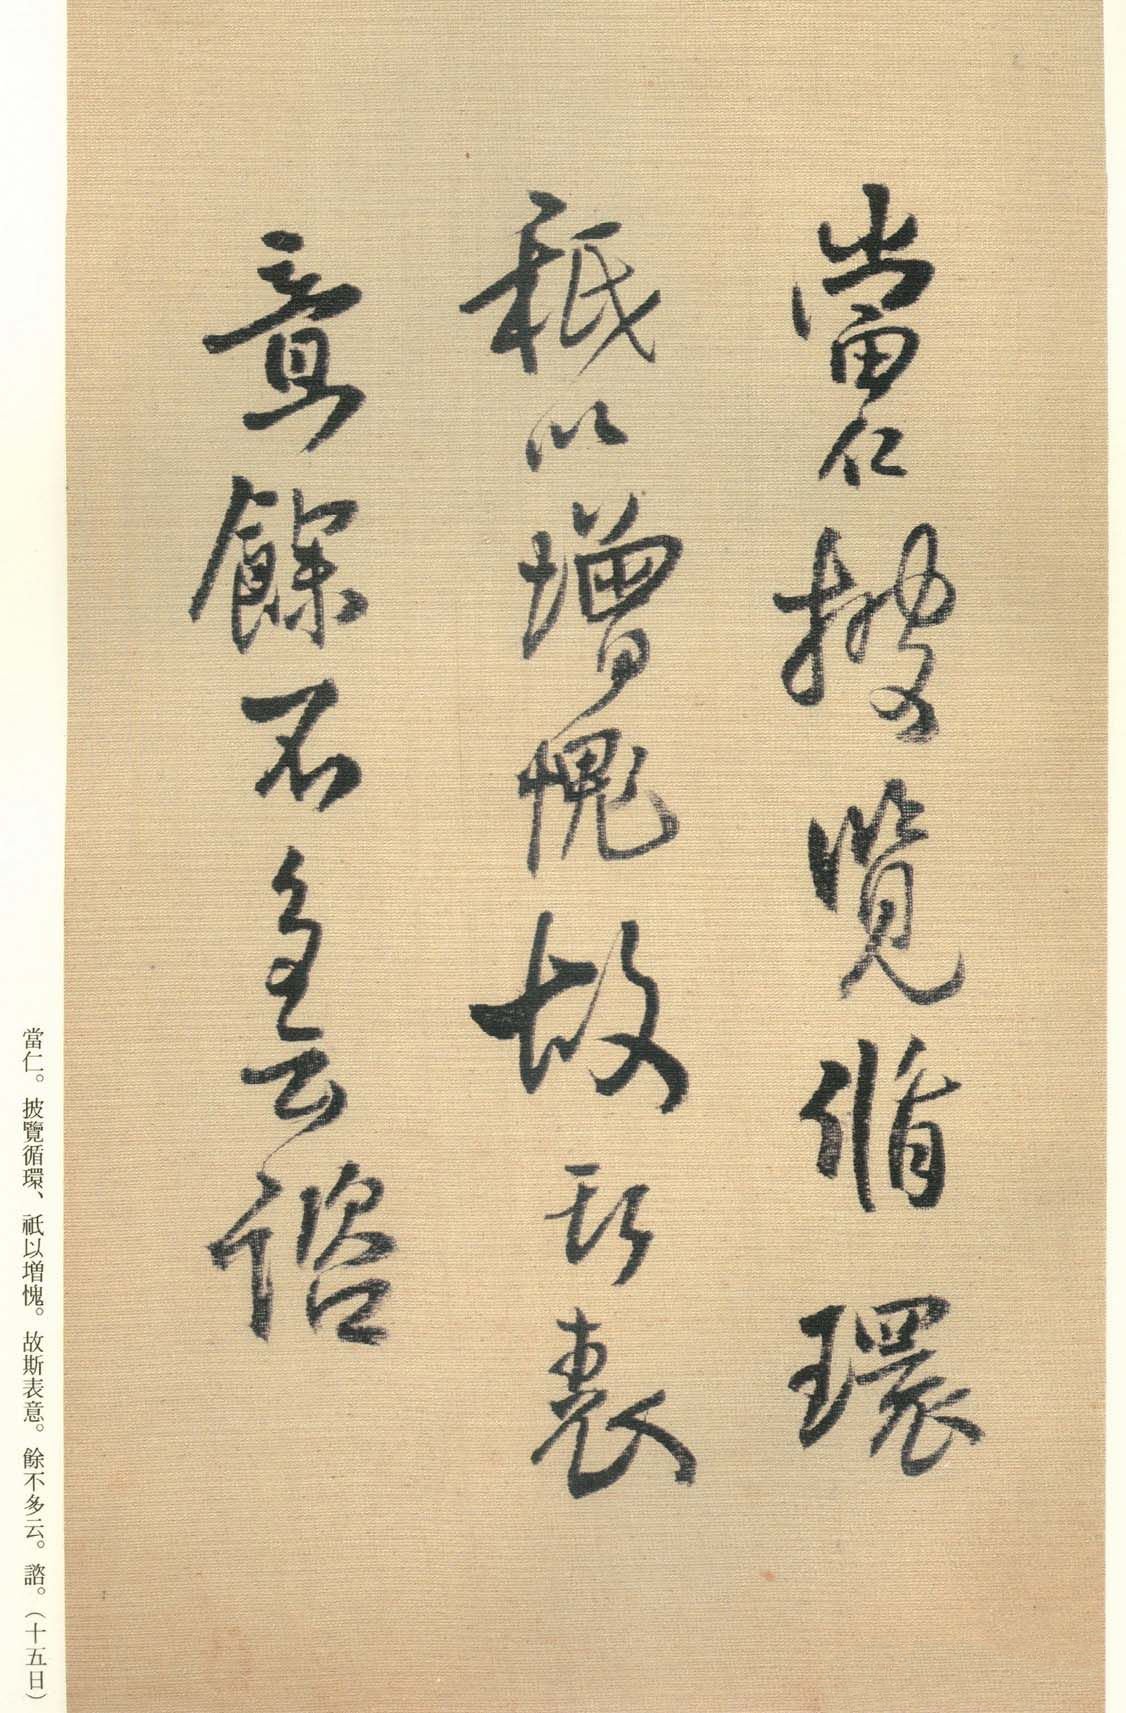 當仁披覽循環
祇以增愧故斯表
意餘不多云諮
當仁。披覽循環、祇以増愧。故斯表意。餘不多云。諮。（十五日）